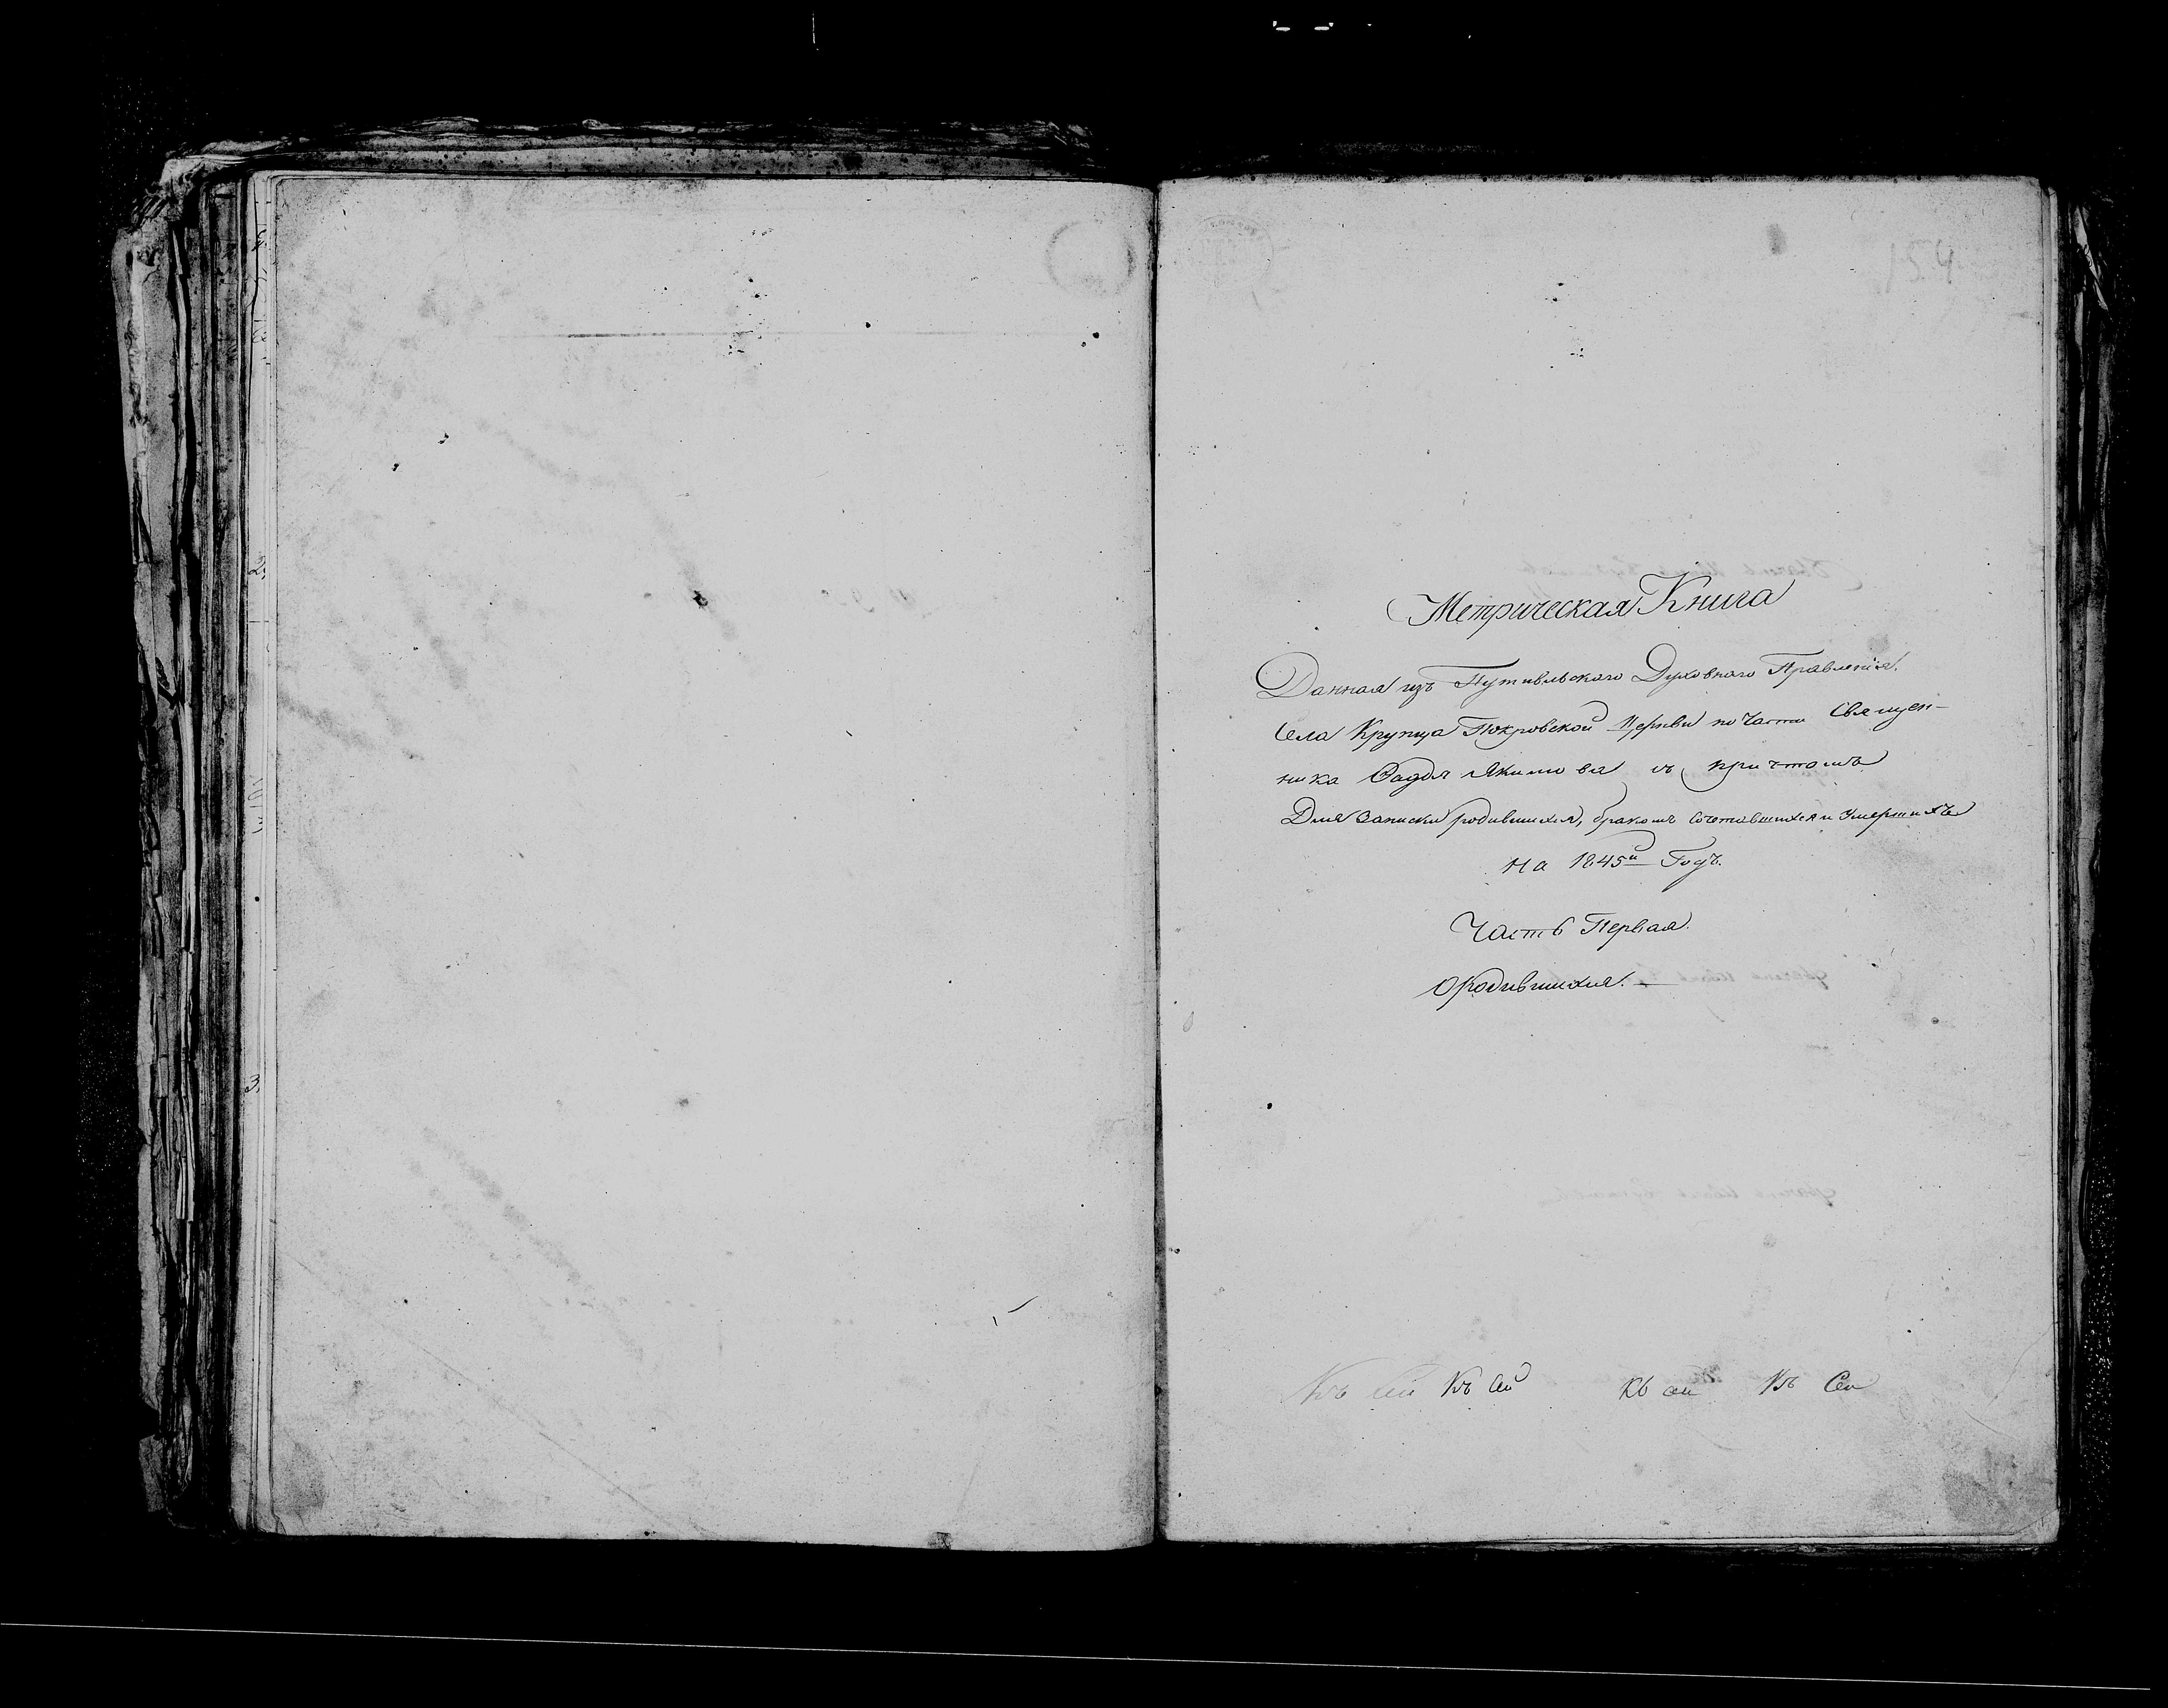 154
Метрическая Книга
Данная изъ Путивльскаго Духовнаго Правленія.
Села Крупца Покровской Церкви по части Священ-
ника Якимова съ причтомъ
Для записки родившихся, бракомъ сочетавшихся и умершихъ
На 1845й Годъ.
Часть Первая.
О родившихся.
Къ Къ Къ Къ